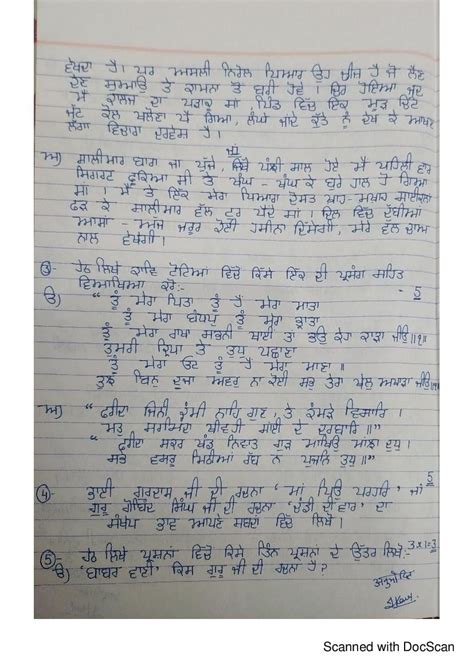 ਵੇਖਦਾ ਹੈ। ਪਰ ਅਸਲੀ ਨਿਰੋਲ ਪਿਆਰ ਉਹ ਚੀਜ਼ ਹੈ ਜੋ ਲੈਣ
ਦੇਣ ਸੁਆਉ ਤੇ ਕਾਮਨਾ ਤੋਂ ਬੁਰੀ ਹੋਵੇ । ਚਿਰ ਹੋਇਆ ਜਦ
ਮੈਂ ਕਾਲਜ ਦਾ ਪੜਾਕੂ ਸਾਂ, ਪਿੰਡ ਵਿੱਚ ਇਕ ਮੂੜ ਚਿੱਟ
ਜੱਟ ਕੋਲ ਖਲੋਣਾ ਪੈ ਗਿਆ, ਲੰਘੇ ਜਾਂਦੇ ਕੁੱਤੇ ਨੂੰ ਦੇਖ ਕੇ ਆਖਣ
ਲੱਗਾ ਵਿਚਾਰਾ ਦਰਵੇਸ਼ ਹੈ ।
ਅ) ਸਾਲੀਮਾਰ ਬਾਗ ਜਾ ਪੁੱਜੇ, ਪੰਝੀ ਸਾਲ ਹੋਏ ਮੈਂ ਪਹਿਲੀ ਵਾਰ
ਸਿਗਰਟ ਫੂਕਿਆ ਸੀ ਤੇ ਖੰਘ - ਖੰਘ ਕੇ ਬੁਰੇ ਹਾਲ ਹੋ ਗਿਆ
ਸਾਂ । ਮੈਂ ਤੇ ਇੱਕ ਮੇਰਾ ਪਿਆਰਾ ਦੋਸਤ ਸਾਈਕਲਾਂ
ਫੜ ਕੇ ਸਾਲੀਮਾਰ ਵੱਲ ਟੁਰ ਪੈਂਦੇ ਸਾਂ । ਦਿਲ ਵਿੱਚ ਦੱਬੀਆਂ
ਆਸਾਂ - ਅੱਜ ਜ਼ਰੂਰ ਕੋਈ ਹਸੀਨਾ ਦਿਸੇਗੀ, ਮੇਰੇ ਵੱਲ ਚਾਅ
ਨਾਲ ਵੇਖੇਗੀ ।
③- ਹੇਠ ਲਿਖੇ ਕਾਵਿ ਟੋਟਿਆਂ ਵਿੱਚੋਂ ਕਿਸੇ ਇੱਕ ਦੀ ਪ੍ਰਸੰਗ ਸਹਿਤ
ਵਿਆਖਿਆ ਕਰੋ:- - 5
ੳ) " ਤੂੰ ਮੇਰਾ ਪਿਤਾ ਤੂੰ ਹੈ ਮੇਰਾ ਮਾਤਾ
ਤੂੰ ਮੇਰਾ ਬੰਧਪੁ ਤੂੰ ਮੇਰਾ ਭ੍ਰਾਤਾ
ਤੂੰ ਮੇਰਾ ਰਾਖਾ ਸਭਨੀ ਥਾਈ ਤਾਂ ਭਉ ਕੇਹਾ ਕਾੜਾ ਜੀਉ॥੧॥
ਤੁਮਰੀ ਕ੍ਰਿਪਾ ਤੇ ਤੁਧੁ ਪਛਾਣਾ
ਤੂੰ ਮੇਰੀ ਓਟ ਤੂੰ ਹੈ ਮੇਰਾ ਮਾਣਾ ॥
ਤੁਝ ਬਿਨੁ ਦੂਜਾ ਅਵਰੁ ਨਾ ਕੋਈ ਸਭੁ ਤੇਰਾ ਖੇਲੁ ਅਖਾੜਾ ਜੀਉ
ਅ) " ਫਰੀਦਾ ਜਿਨੀ ਕੰਮੀ ਨਾਹਿ ਗੁਣ, ਤੇ ਕੰਮੜੇ ਵਿਸਾਰਿ ।
ਮਤੁ ਸਰਮਿੰਦਾ ਥੀਵਹੀ ਸਾਂਈ ਦੇ ਦਰਬਾਰਿ ॥"
" ਫਰੀਦਾ ਸਕਰ ਖੰਡ ਨਿਵਾਤ ਗੁੜ ਮਾਖਿਓ ਮਾਂਝਾ ਦੁਧੁ ।
ਸਭੇ ਵਸਤੂ ਮਿਠੀਆਂ ਰੱਬ ਨ ਪੁਜਨਿ ਤੁਧੁ ॥"
5
④- ਭਾਈ ਗੁਰਦਾਸ ਜੀ ਦੀ ਰਚਨਾ ' ਮਾਂ ਪਿਓ ਪਰਹਰਿ ' ਜਾਂ
ਗੁਰੂ ਗੋਬਿੰਦ ਸਿੰਘ ਜੀ ਦੀ ਰਚਨਾ 'ਚੰਡੀ ਦੀ ਵਾਰ ' ਦਾ
ਸੰਖੇਪ ਭਾਵ ਆਪਣੇ ਸ਼ਬਦਾਂ ਵਿੱਚ ਲਿਖੋ ।
⑤- ਹੇਠ ਲਿਖੇ ਪ੍ਰਸ਼ਨਾਂ ਵਿੱਚੋਂ ਕਿਸੇ ਤਿੰਨ ਪ੍ਰਸ਼ਨਾਂ ਦੇ ਉੱਤਰ ਲਿਖੋ:- 3x1=3
ੳ) 'ਬਾਬਰ ਵਾਣੀ' ਕਿਸ ਗੁਰੂ ਜੀ ਦੀ ਰਚਨਾ ਹੈ ?
Scanned with DocScan